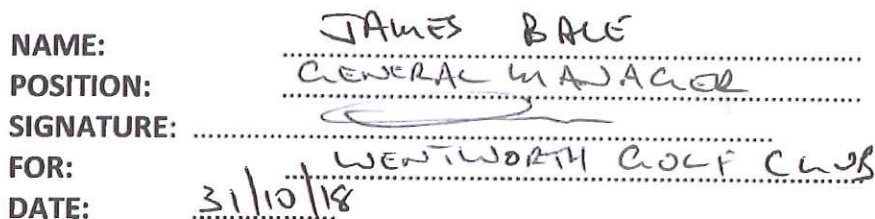 NAME: JAMES BALE
POSITION: GENERAL MANAGER
SIGNATURE:
FOR: WENTWORTH GOLF CLUB
DATE: 31/10/18